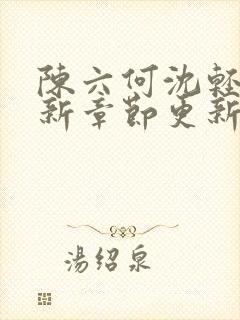 陳六何沈輕
新章節更新
湯紹泉